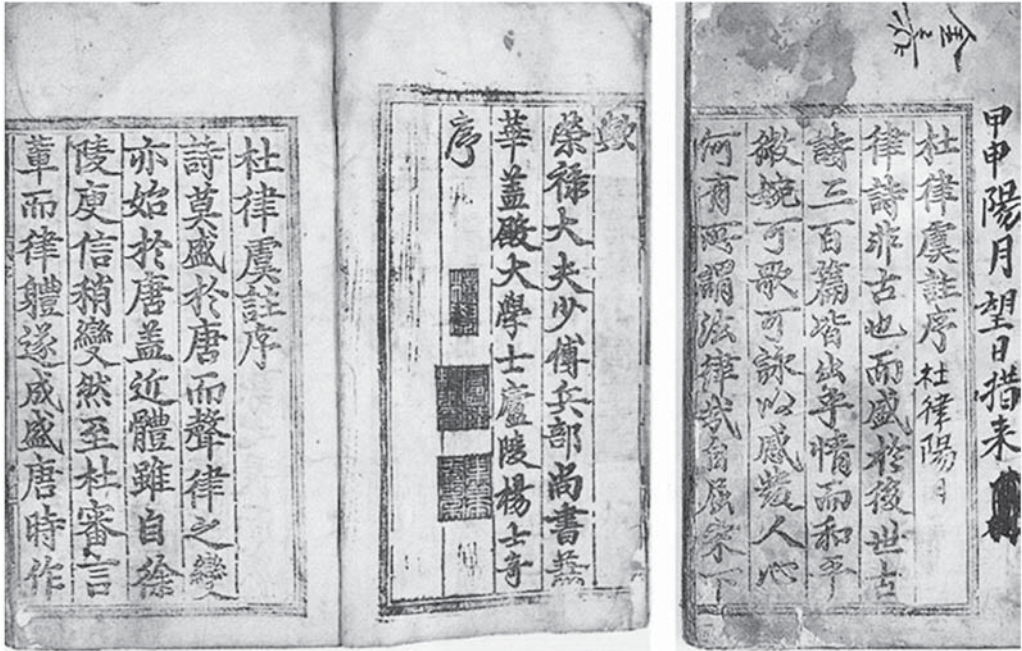 甲申陽月望日措来
杜律虞註序 杜律陽月
律詩非古也而盛於後世古
詩三百篇皆出乎情而和平
微婉可歌可詠以感發人心
何有所謂法律哉自屈宋下
歟
榮祿大夫少傅兵部尚書兼
華盖殿大學士廬陵楊士奇
序
杜律虞註序
詩莫盛於唐而聲律之變
亦始於唐盖近體雖自徐
陵庾信稍變然至杜審言
軰而律軆遂成盛唐時作